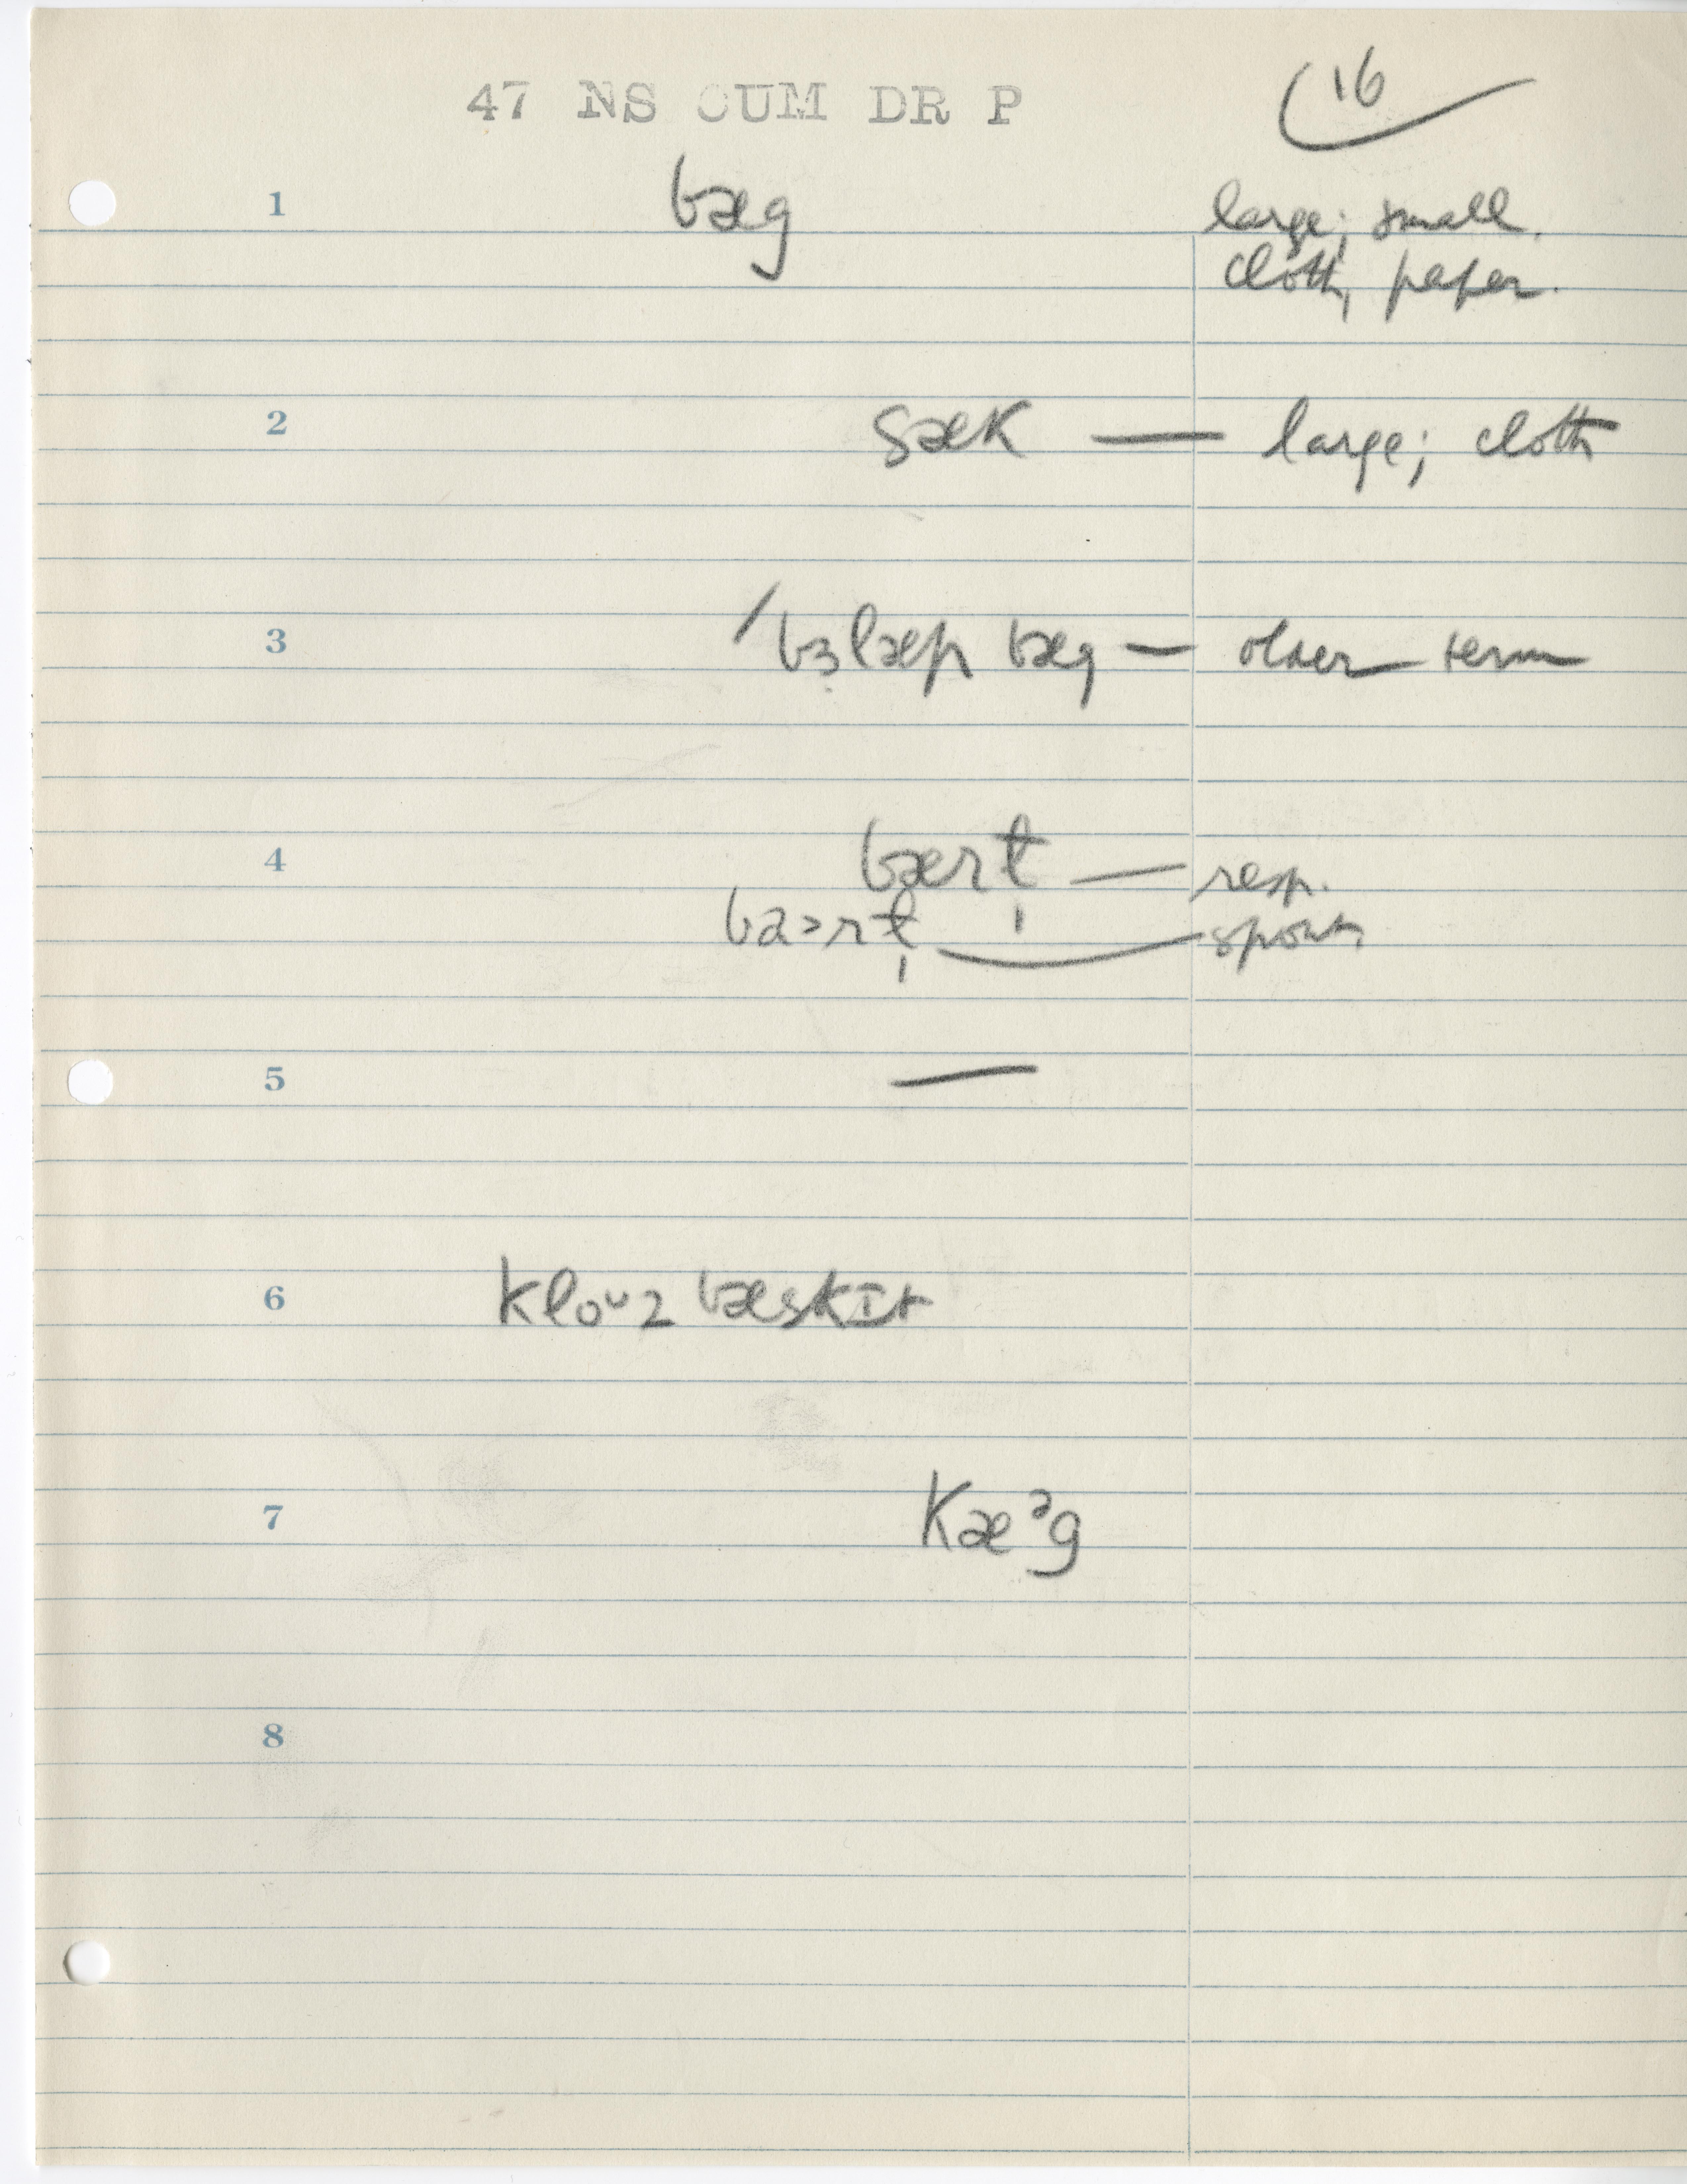 47 NS CUM DR P
16
1 bæg large; small.
cloth, paper.
2 sæk — large; cloth
3 ˈbɜlæp bæg — older term
4 bærɫ̩ — resp.
ba>rɫ̩ — spont.
5 —
6 kloᵘz bæskɪt
7 kæᵊg
8